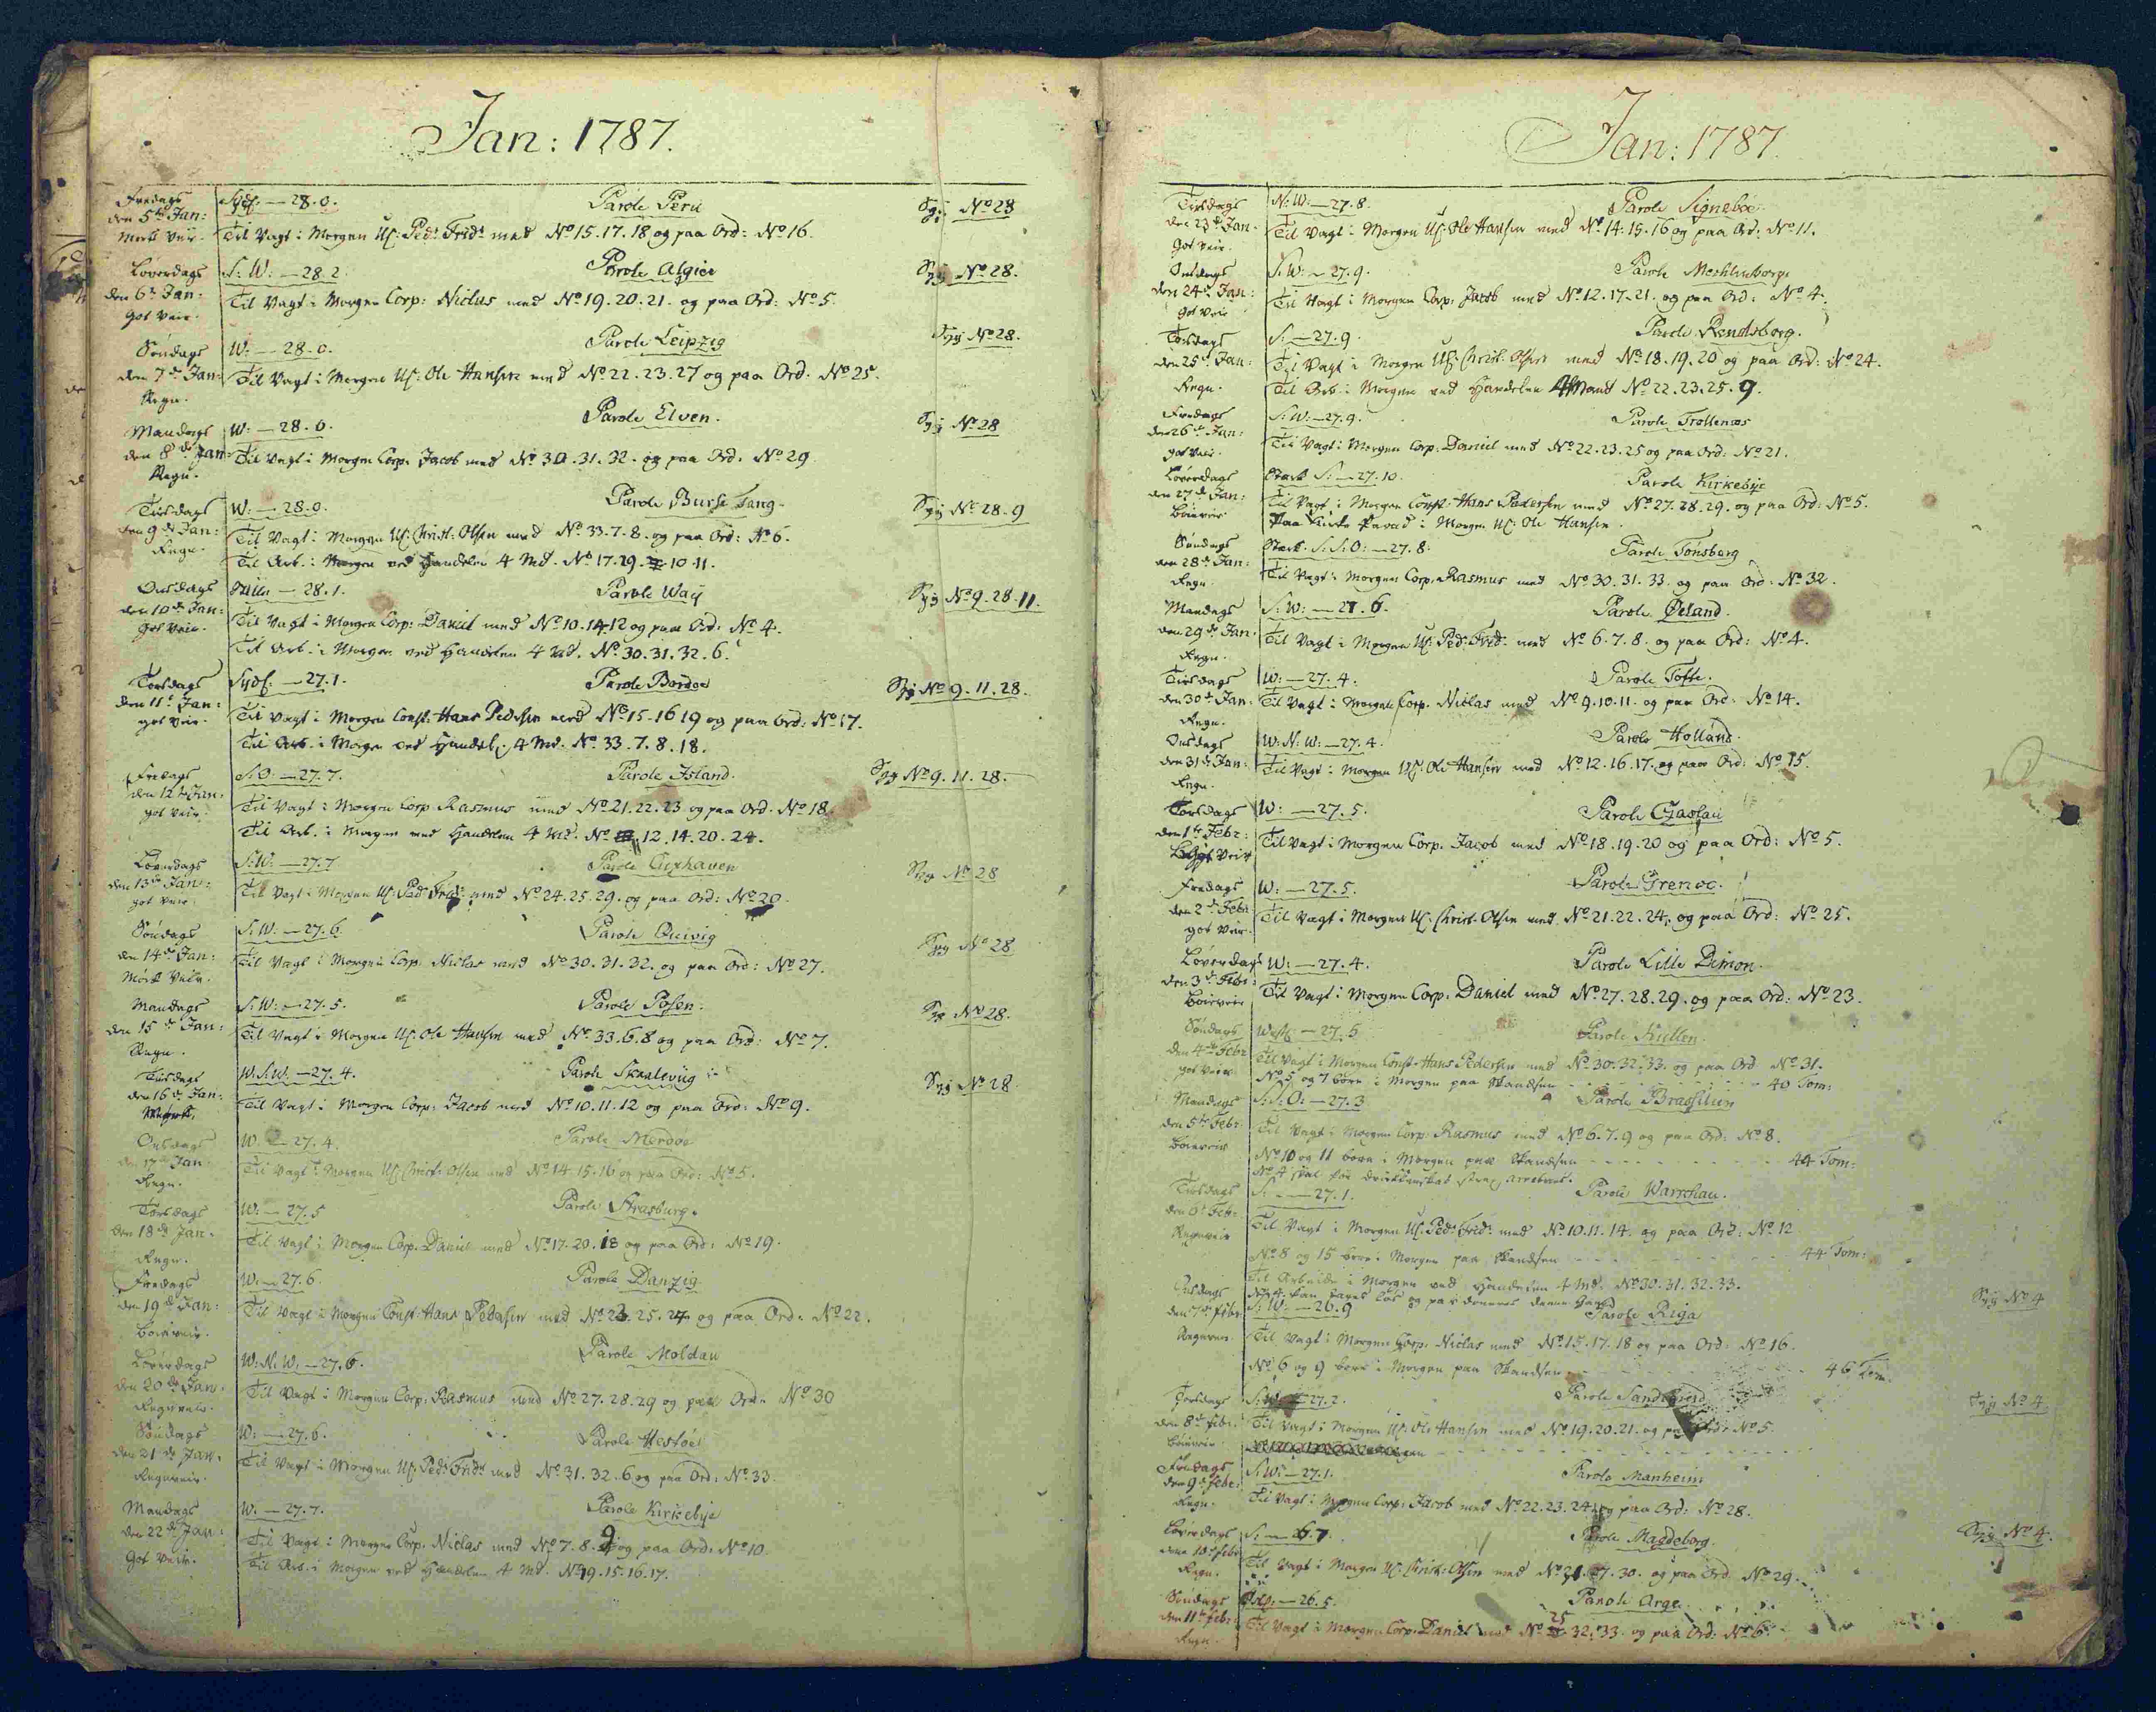 Jan: 1787.
Fredags den 5te Jan: Mørk Veir.
Sydl: — 28.0. Parole Peru Syg No 28
Til Vagt i Morgen Us: Ped: Frid: med No 15.17.18 og paa Ord: No 16.
Løverdags den 6te Jan: got Veir.
S:W: — 28.2. Parole Algier Syg No 28.
Til Vagt i Morgen Corp: Niclas med No 19.20.21. og paa Ord: No 5.
Søndags den 7de Jan: Regn.
W: — 28.0. Parole Leipzig Syg No 28.
Til Vagt i Morgen Us: Ole Hansen med No 22.23.27 og paa Ord. No 25.
Mandags den 8de Jan: Regn.
W: — 28.0. Parole Elven. Syg No 28
Til Vagt i Morgen Corp. Jacob med No 30.31.32. og paa Ord. No 29.
Tirsdags den 9de Jan: Regn.
W: — 28.0. Parole Syg No 28.9
Til Vagt i Morgen Us: Christ: Olsen med No 33.7.8. og paa Ord: No 6.
Til Arb. i Morgen ved Handelen 4 Md. No 17.29. 10.11.
Onsdags den 10de Jan: got Veir.
Stille — 28.1. Parole Waij Syg No 9.28.11.
Til Vagt i Morgen Corp: Daniel med No 10.14.12 og paa Ord: No 4.
Til Arb. i Morgen ved Handelen 4 Md. No 30.31.32.6.
Torsdags den 11te Jan: got Veir.
Sydl: — 27.1. Parole Bordoe Syg No 9.11.28.
Til Vagt i Morgen Const: Hans Pedersen med No 15.16 19 og paa Ord: No 17.
Til Arb. i Morgen ved Handel: 4 Md. No 33.7.8.18.
Fredags den 12te Jan: got Veir.
S:O: — 27.7. Parole Island. Syg No 9.11.28.
Til Vagt i Morgen Corp Rasmus med No 21.22.23 og paa Ord. No 18.
Til Arb. i Morgen ved Handelen 4 Md. No 12.14.20.24.
Løverdags den 13de Jan: got Veir.
S:W: — 27.7 Parole Cuxhaven Syg No 28
Til Vagt i Morgen Us: Ped: Frid: med No 24.25.29. og paa Ord: No 20.
Søndags den 14de Jan: Mørk Veir.
S:W: — 27.6 Parole Qvivig Syg No 28
Til Vagt i Morgen Corp. Niclas med No 30.31.32. og paa Ord: No 27.
Mandags den 15de Jan: Regn.
S:W: — 27.5. Parole Posen. Syg No 28.
Til Vagt i Morgen Us: Ole Hansen med No 33.6.8 og paa Ord: No 7.
Tirsdags den 16de Jan: Mørk.
W.S:W. — 27.4. Parole Skaalevig Syg No 28
Til Vagt i Morgen Corp: Jacob med No 10.11.12 og paa Ord: No 9.
Onsdags den 17de Jan: Regn.
W. — 27.4. Parole Merdøe
Til Vagt i Morgen Us: Christ: Olsen med No 14.15.16 og paa Ord: No 5.
Torsdags den 18de Jan. Regn.
W: — 27.5 Parole Strasburg.
Til Vagt i Morgen Corp. Daniel med No 17.20.18 og paa Ord: No 19.
Fredags den 19de Jan: Bøieveir.
W: — 27.6. Parole Danzig
Til Vagt i Morgen Const: Hans Pedersen med No 23.25.24 og paa Ord. No 22.
Løverdags den 20de Jan: Regnveir.
W:N:W: — 27.6. Parole Moldau
Til Vagt i Morgen Corp: Rasmus med No 27.28.29 og paa Ord: No 30
Søndags den 21de Jan. Regnveir.
W: — 27.6. Parole Hestøe
Til Vagt i Morgen Us: Ped: Frid: med No 31.32.6 og paa Ord: No 33.
Mandags den 22de Jan: Got Veir.
W. — 27.7. Parole Kirkebye
Til Vagt i Morgen Corp. Niclas med No 7.8.9 og paa Ord. No 10.
Til Arb. i Morgen ved Handelen 4 Md. No 19.15.16.17.
Jan: 1787.
Tirsdags den 23de Jan: got Veir.
N:W: — 27.8. Parole Signeboe
Til Vagt i Morgen Us: Ole Hansen med No 14.15.16 og paa Ord: No 11.
Onsdags den 24de Jan: got Veir
S:W: — 27.9. Parole Mechlenborg
Til Vagt i Morgen Corp: Jacob med No 12.17.21. og paa Ord: No 4.
Torsdags den 25de Jan: Regn.
S: — 27.9. Parole Rendsborg.
Til Vagt i Morgen Us: Christ: Olsen med No 18.19.20 og paa Ord: No 24.
Til Arb. i Morgen ved Handelen 4 Mand No 22.23.25.9.
Fredags den 26de Jan: got Veir.
S:W: — 27.9. Parole Trollenæs
Til Vagt i Morgen Corp: Daniel med No 22.23.25 og paa Ord: No 21.
Løverdags den 27de Jan: Bøieveir
Stærk S: — 27.10. Parole Kirkebye
Til Vagt i Morgen Const: Hans Pedersen med No 27.28.29. og paa Ord: No 5.
Paa Kirke Parad i Morgen Us: Ole Hansen.
Søndags den 28de Jan: Regn
Stærk. S:S:O: — 27.8. Parole Tonsberg
Til Vagt i Morgen Corp. Rasmus med No 30.31.33. og paa Ord: No 32.
Mandags den 29de Jan: Regn.
S:W: — 27.6. Parole Øeland.
Til Vagt i Morgen Us: Ped: Frid: med No 6.7.8. og paa Ord: No 4.
Tirsdags den 30te Jan: Regn.
W: — 27.4. Parole Tofte.
Til Vagt i Morgen Corp. Niclas med No 9.10.11. og paa Ord: No 14.
Onsdags den 31te Jan: Regn.
W:N:W: — 27.4. Parole Holland.
Til Vagt i Morgen Us: Ole Hansen med No 12.16.17. og paa Ord: No 15.
Torsdags den 1te Febr: Veir
W: — 27.5. Parole Czaslau
Til Vagt i Morgen Corp. Jacob med No 18.19.20 og paa Ord: No 5.
Fredags den 2de Febr. got Veir.
W: — 27.5. Parole
Til Vagt i Morgen Us. Christ. Olsen med No 21.22.24. og paa Ord: No 25.
Løverdags den 3de Febr: Bøieveir
W: — 27.4. Parole Lille Dimon.
Til Vagt i Morgen Corp: Daniel med No 27.28.29. og paa Ord: No 23.
Søndags den 4de Febr got Veir.
Westl: — 27.5 Parole Kullen.
Til Vagt i Morgen Const. Hans Pedersen med No 30.32.33. og paa Ord No 31.
No 5 og 7 bore i Morgen paa Skandsen 40 Tom:
Mandags den 5te Febr: Bøieveir
S:S:O: — 27.3 Parole Brassilien
Til Vagt i Morgen Corp: Rasmus med No 6.7.9 og paa Ord: No 8.
No 10 og 11 bore i Morgen paa Skandsen 44 Tom:
No 4 skal for straf
Tirsdags den 6te Febr: Regnveir
S: — 27.1. Parole Warschau.
Til Vagt i Morgen Us: Ped: Frid: med No 10.11.14. og paa Ord: No 12
No 8 og 15 bore i Morgen paa Skandsen 44 Tom:
Til Arbeide i Morgen ved Handelen 4 Md. No 30.31.32.33.
Onsdags den 7de Febr. Regnveir.
S:W: — 26.9 Parole Riga Syg No 4
Til Vagt i Morgen Corp. Niclas med No 15.17.18 og paa Ord: No 16.
No 6 og 9 bore i Morgen paa Skandsen 46 Tom.
Torsdags den 8de Febr. Bøieveir
S:W: — 27.2. Parole Syg No 4
Til Vagt i Morgen Us: Ole Hansen med No 19.20.21. og paa Ord: No 5.
Fredags den 9de Febr: Regn.
S:W: — 27.1. Parole Manheim
Til Vagt i Morgen Corp: Jacob med No 22.23.24 og paa Ord: No 28.
Løverdags den 10de Febr Regn.
S: — Parole Magdeborg. Syg No 4.
Til Vagt i Morgen Us: Christ: Olsen med No 21.27.30. og paa Ord No 29.
Søndags den 11te Febr: Regn.
— 26.5. Parole Arge.
Til Vagt i Morgen Corp. Daniel med No 25 32.33. og paa Ord: No 6.